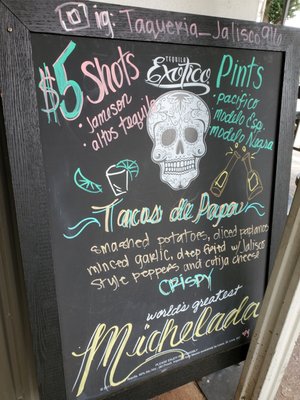 ig Taqueria_Jalisco916
$5 Shots
• Jameson
• altos tequila
TEQUILA
Exotico
Pints
• pacifico
modelo Esp.
modelo Negra
Tacos de Papa
smashed potatoes, diced poblanos
minced garlic, deep fried w/ Jalisco
style peppers and cotija cheese
CRISPY
world's greatest
Michelada